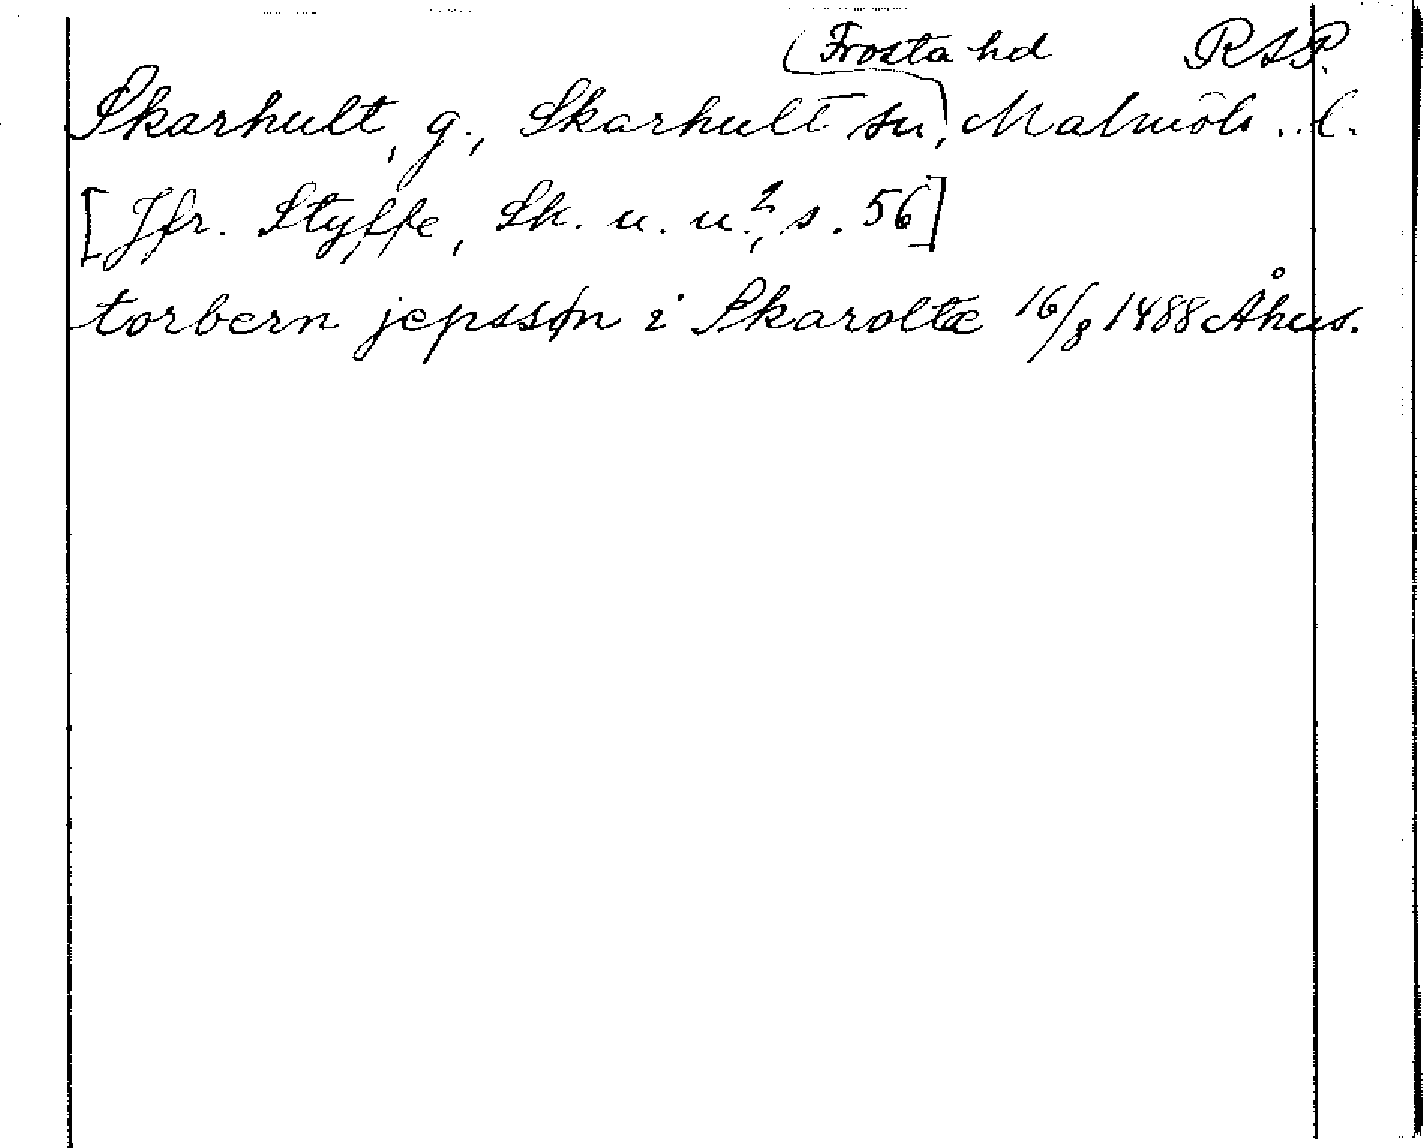 Frosta hd RAP.
Skarhult, g., Skarhult sn, Malmöh. l.
[Jfr. Styffe, Sk. u. u.², s. 56]
torbern jepssøn i Skarolte 16/8 1488 Åhus.